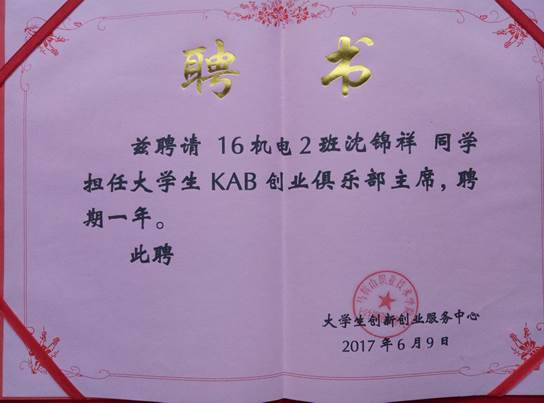 聘 书
兹聘请 16机电2班沈锦祥 同学
担任大学生 KAB 创业俱乐部主席，聘
期一年。
此聘
大学生创新创业服务中心
2017 年 6 月 9 日